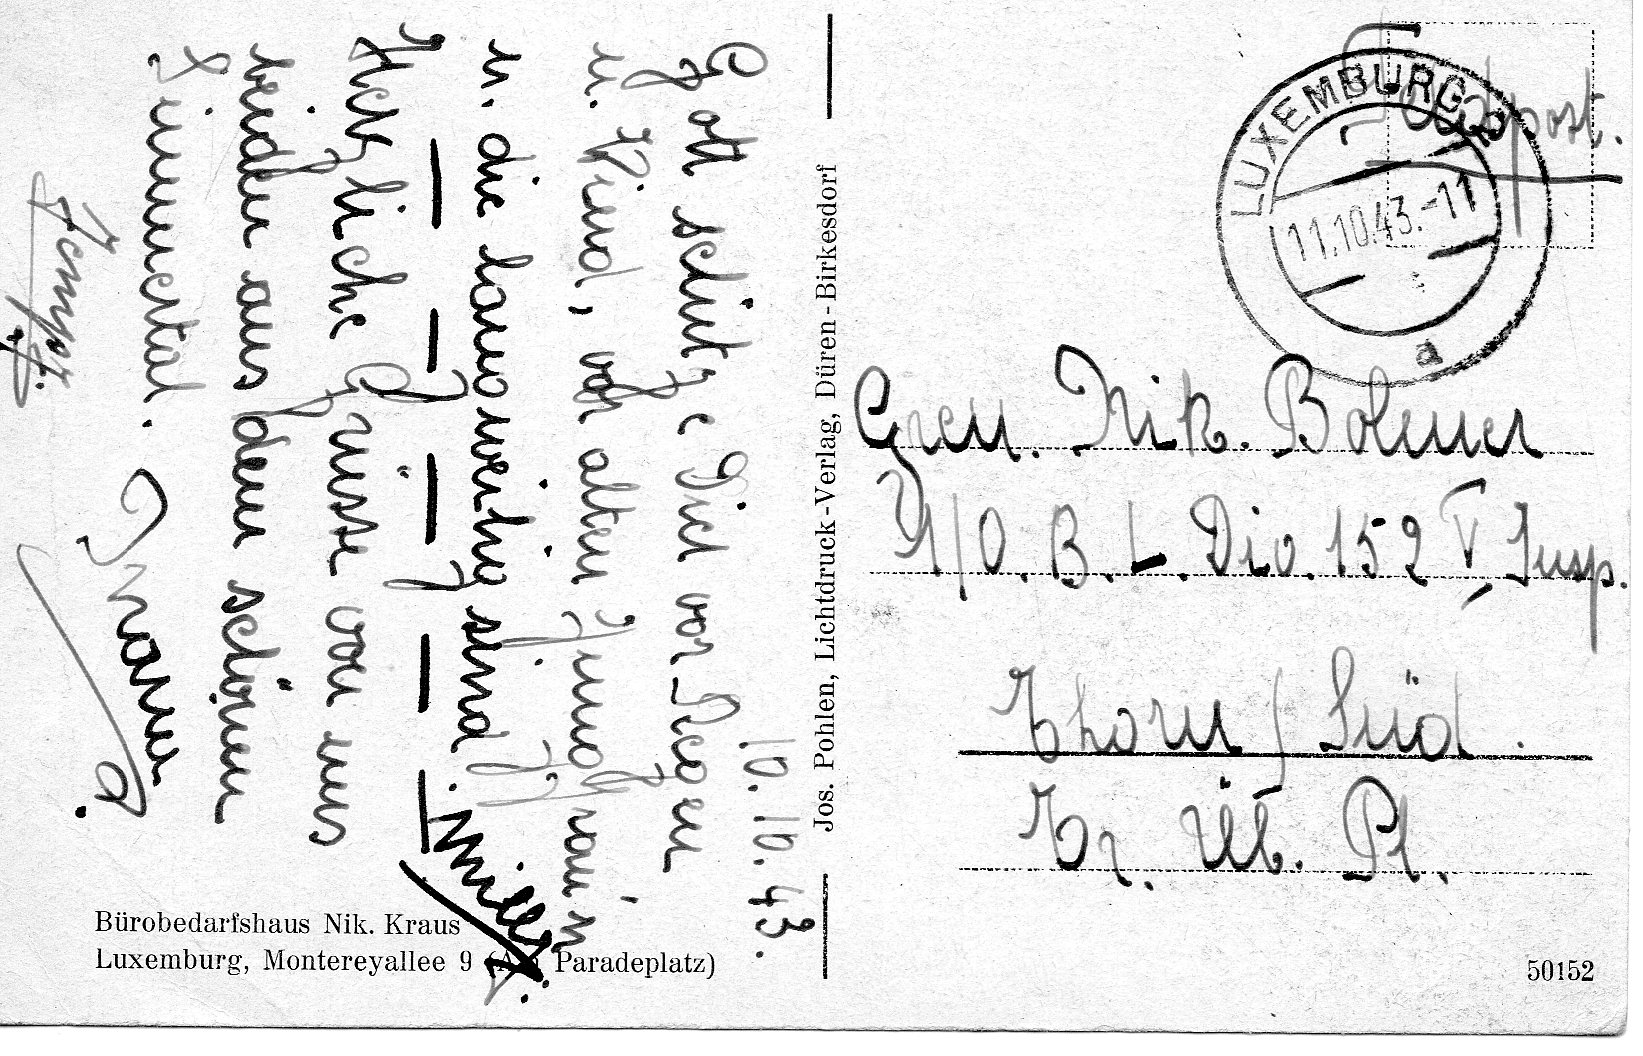 10.10.43.
Gott schütze Dich vor Regen
u. Wind, vor alten Jungfrau'n
u. die launverhio sind.
Willy.
Herzliche Grüsse von uns
beiden aus dem schönen
Simmertal.
Bürobedarfshaus Nik. Kraus
Luxemburg, Montereyallee 9 (Am Paradeplatz)
Jos. Pohlen, Lichtdruck-Verlag, Düren-Birkesdorf
Feldpost.
LUXEMBURG 2
11.10.43.-11
a
Gren. Nik. Bohmer
O.B.L. Dio. 152 V, Insp.
Thorn / Süd.
Tr. Üb. Pl.
50152